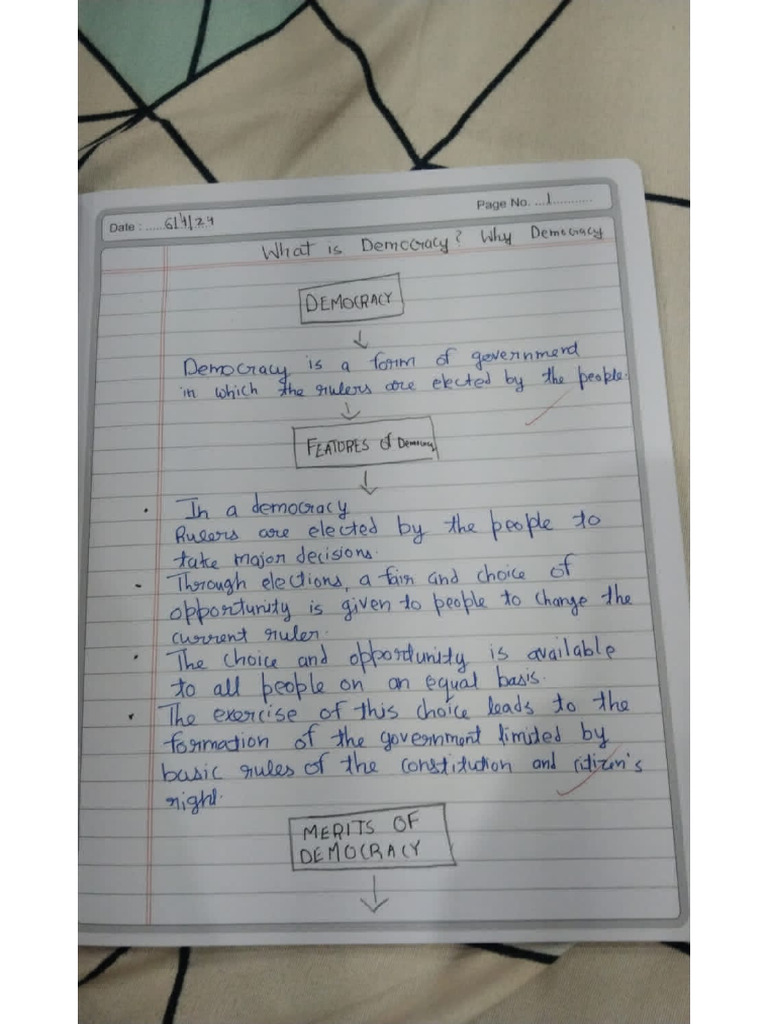 Page No. ...1...........
Date : ......6/4/24
What is Democracy? Why Democracy
DEMOCRACY
↓
Democracy is a form of government
in which the rulers are elected by the people.
↓
FEATURES of Democracy
↓
• In a democracy
Rulers are elected by the people to
take major decisions.
• Through elections, a fair and choice of
opportunity is given to people to change the
current ruler.
• The choice and opportunity is available
to all people on an equal basis.
• The exercise of this choice leads to the
formation of the government limited by
basic rules of the constitution and citizen's
right.
MERITS OF
DEMOCRACY
↓